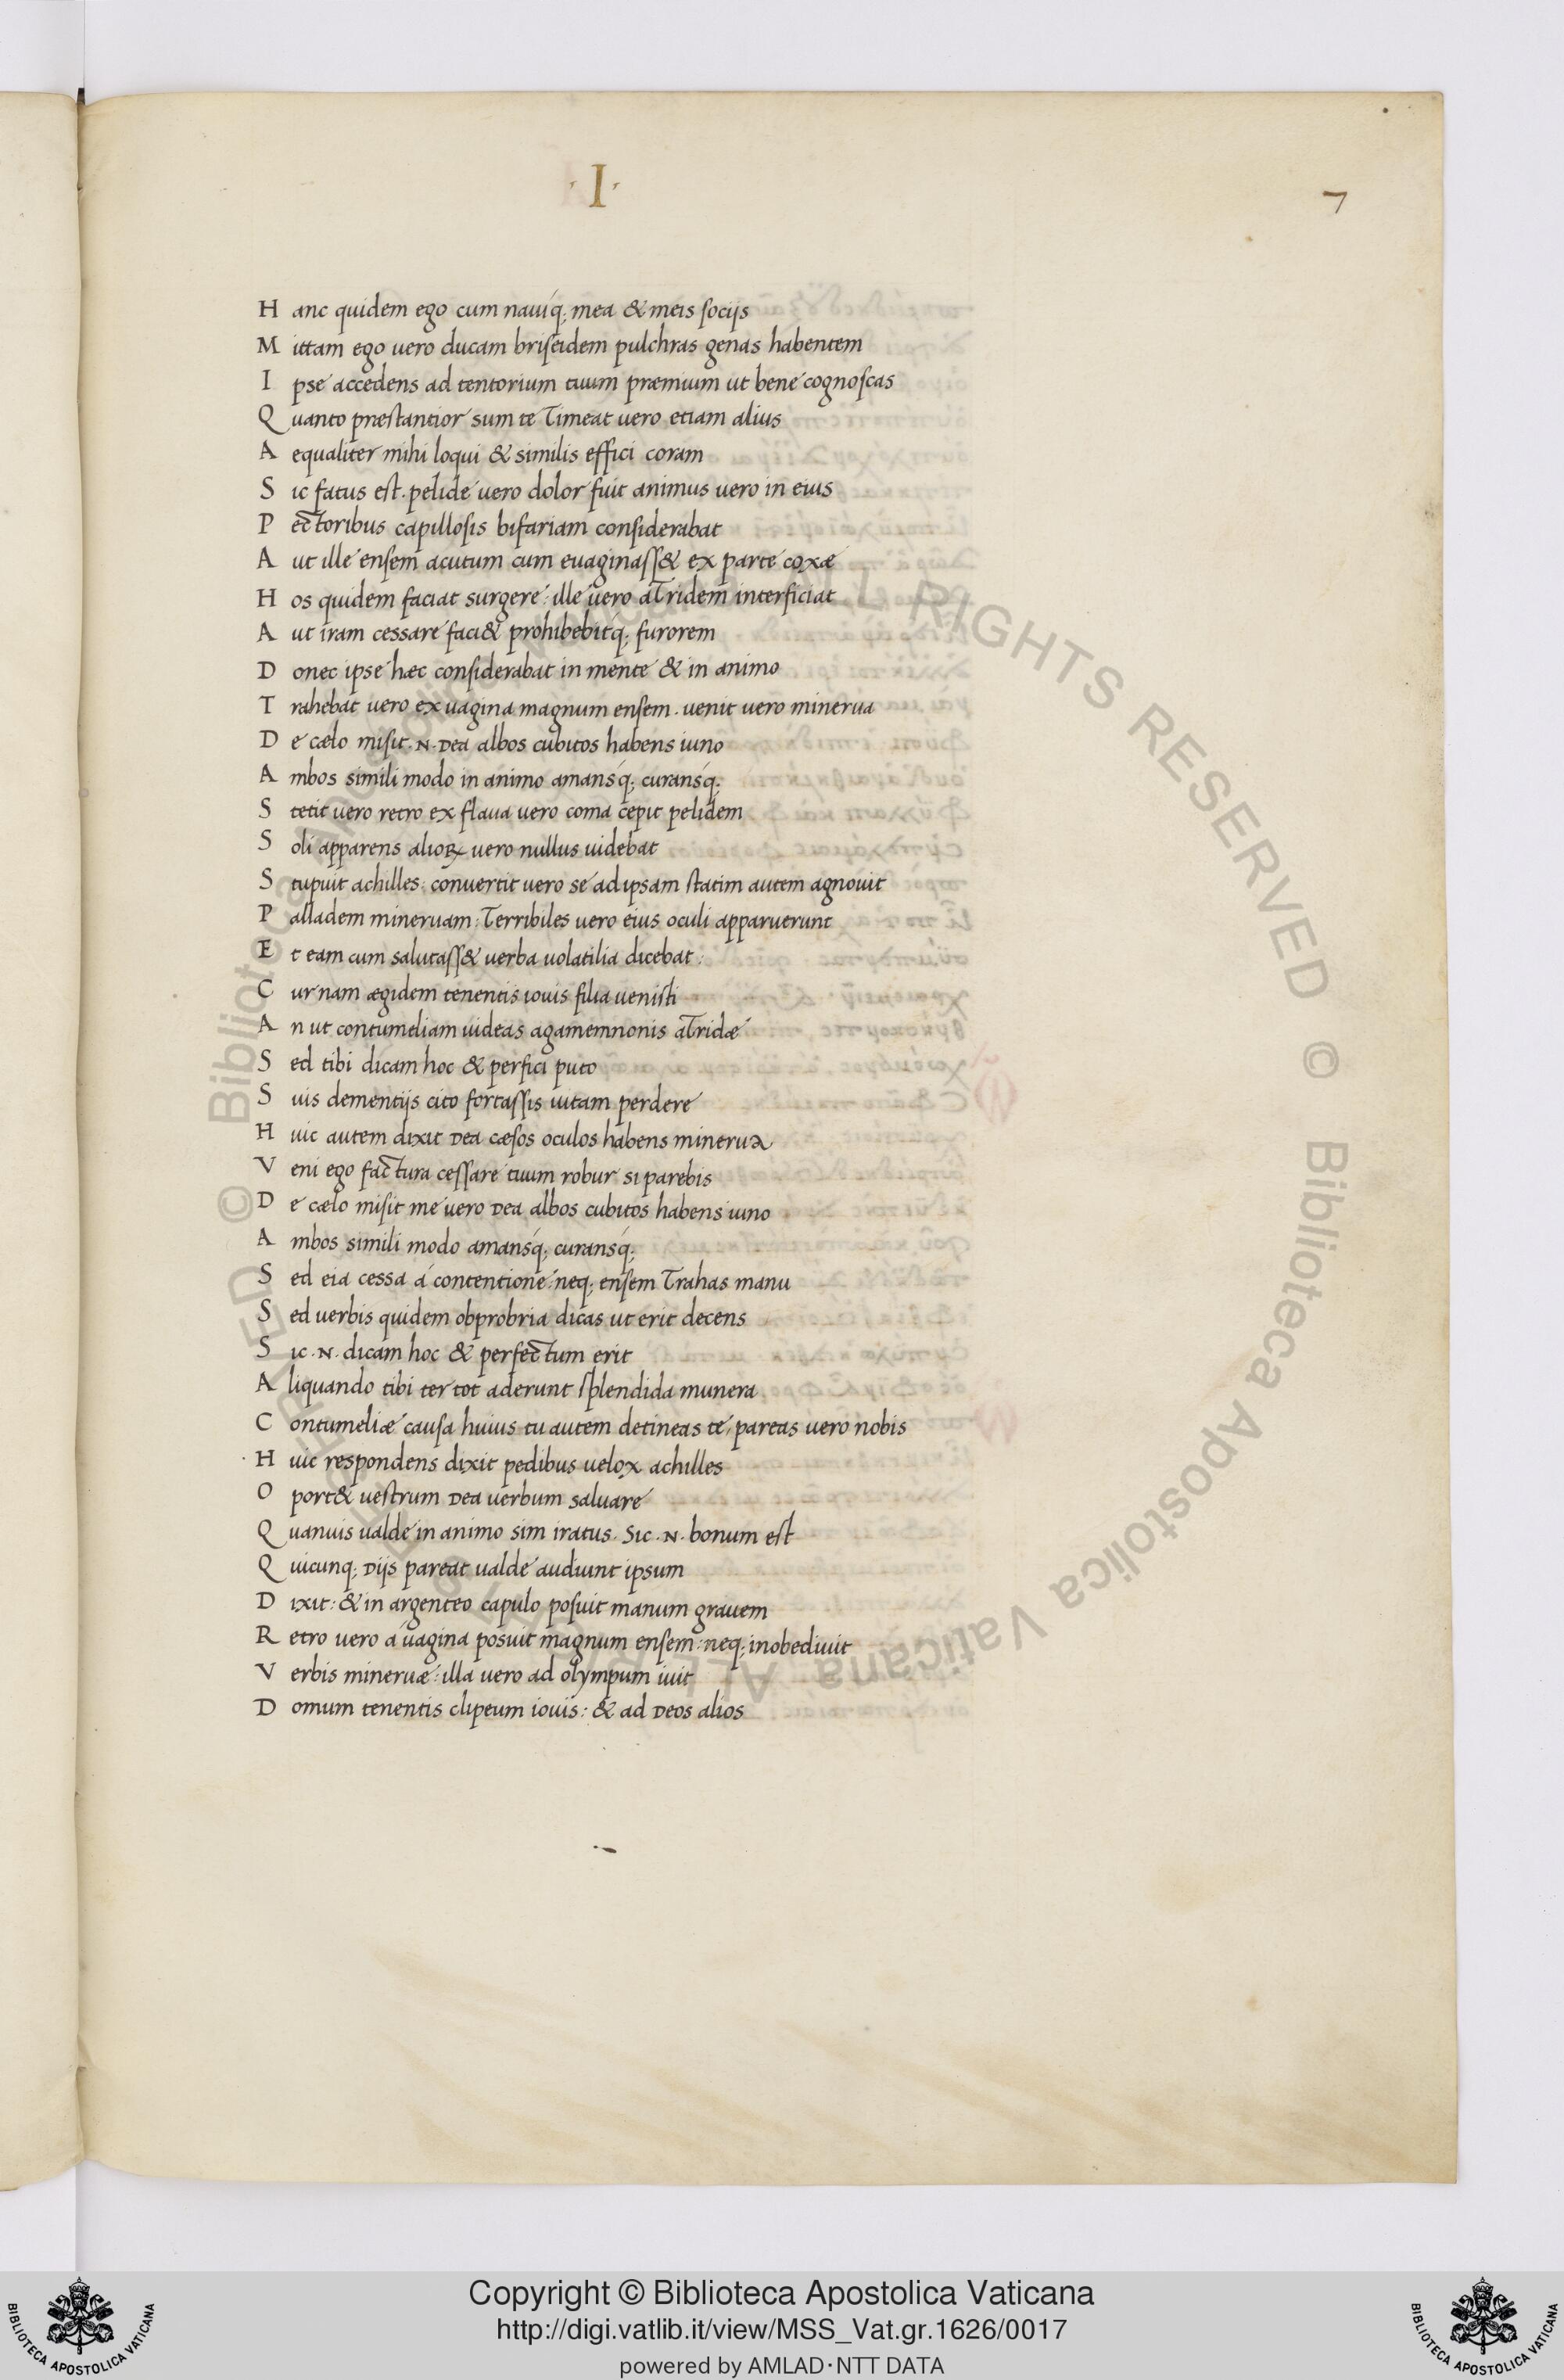 ·I·
7
Hanc quidem ego cum nauiq; mea & meis socijs
Mittam ego uero ducam briseidem pulchras genas habentem
Ipse accedens ad tentorium tuum præmium ut bene cognoscas
Quanto præstantior sum te Timeat uero etiam alius
Aequaliter mihi loqui & similis effici coram
Sic fatus est. pelide uero dolor fuit animus uero in eius
Pectoribus capillosis bifariam considerabat
Aut ille ensem acutum cum euaginass& ex parte coxæ
Hos quidem faciat surgere: ille uero aTridem interficiat
Aut iram cessare faci& prohibebitq; furorem
Donec ipse hæc considerabat in mente & in animo
Trahebat uero ex uagina magnum ensem. uenit uero minerua
De cælo misit .N. Dea albos cubitos habens iuno
Ambos simili modo in animo amansq; curansq;
Stetit uero retro ex flaua uero coma cepit pelidem
Soli apparens alioꝝ uero nullus uidebat
Stupuit achilles: conuertit uero se ad ipsam statim autem agnouit
Palladem mineruam: Terribiles uero eius oculi apparuerunt
Et eam cum salutass& uerba uolatilia dicebat:
Cur nam ægidem tenentis iouis filia uenisti
An ut contumeliam uideas agamemnonis aTridæ
Sed tibi dicam hoc & perfici puto
Suis dementijs cito fortassis uitam perdere
Huic autem dixit Dea cæsos oculos habens minerua
Veni ego factura cessare tuum robur si parebis
De cælo misit me uero Dea albos cubitos habens iuno
Ambos simili modo amansq; curansq;
Sed eia cessa á contentione: neq; ensem Trahas manu
Sed uerbis quidem obprobria dicas ut erit decens
Sic .N. dicam hoc & perfectum erit
Aliquando tibi ter tot aderunt splendida munera
Contumeliæ causa huius tu autem detineas te, pareas uero nobis
Huic respondens dixit pedibus uelox achilles
Oport& uestrum Dea uerbum saluare
Quanuis ualde in animo sim iratus. Sic .N. bonum est
Quicunq; Dijs pareat ualde audiunt ipsum
Dixit: & in argenteo capulo posuit manum grauem
Retro uero á uagina posuit magnum ensem: neq; inobediuit
Verbis mineruæ: illa uero ad olympum iuit
Domum tenentis clipeum iouis: & ad Deos alios
© Biblioteca Apostolica Vaticana ALL RIGHTS RESERVED © Biblioteca Apostolica Vaticana ALL RIGHTS RESERVED
BIBLIOTECA APOSTOLICA VATICANA
Copyright © Biblioteca Apostolica Vaticana
http://digi.vatlib.it/view/MSS_Vat.gr.1626/0017
powered by AMLAD·NTT DATA
BIBLIOTECA APOSTOLICA VATICANA